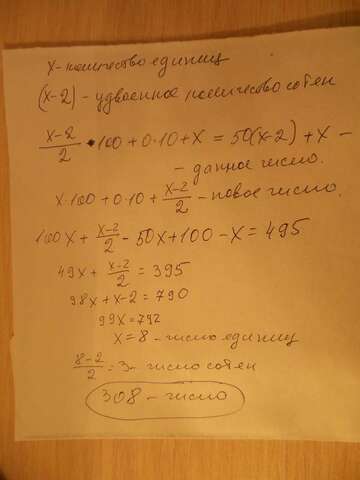 x - количество единиц
(x-2) - удвоенное количество сотен
x-2/2 • 100 + 0·10 + x = 50(x-2) + x -
- данное число.
x·100 + 0·10 + x-2/2 - новое число.
100x + x-2/2 - 50x + 100 - x = 495
49x + x-2/2 = 395
98x + x-2 = 790
99x = 792
x = 8 - число единиц
8-2/2 = 3 - число сотен
308 - число